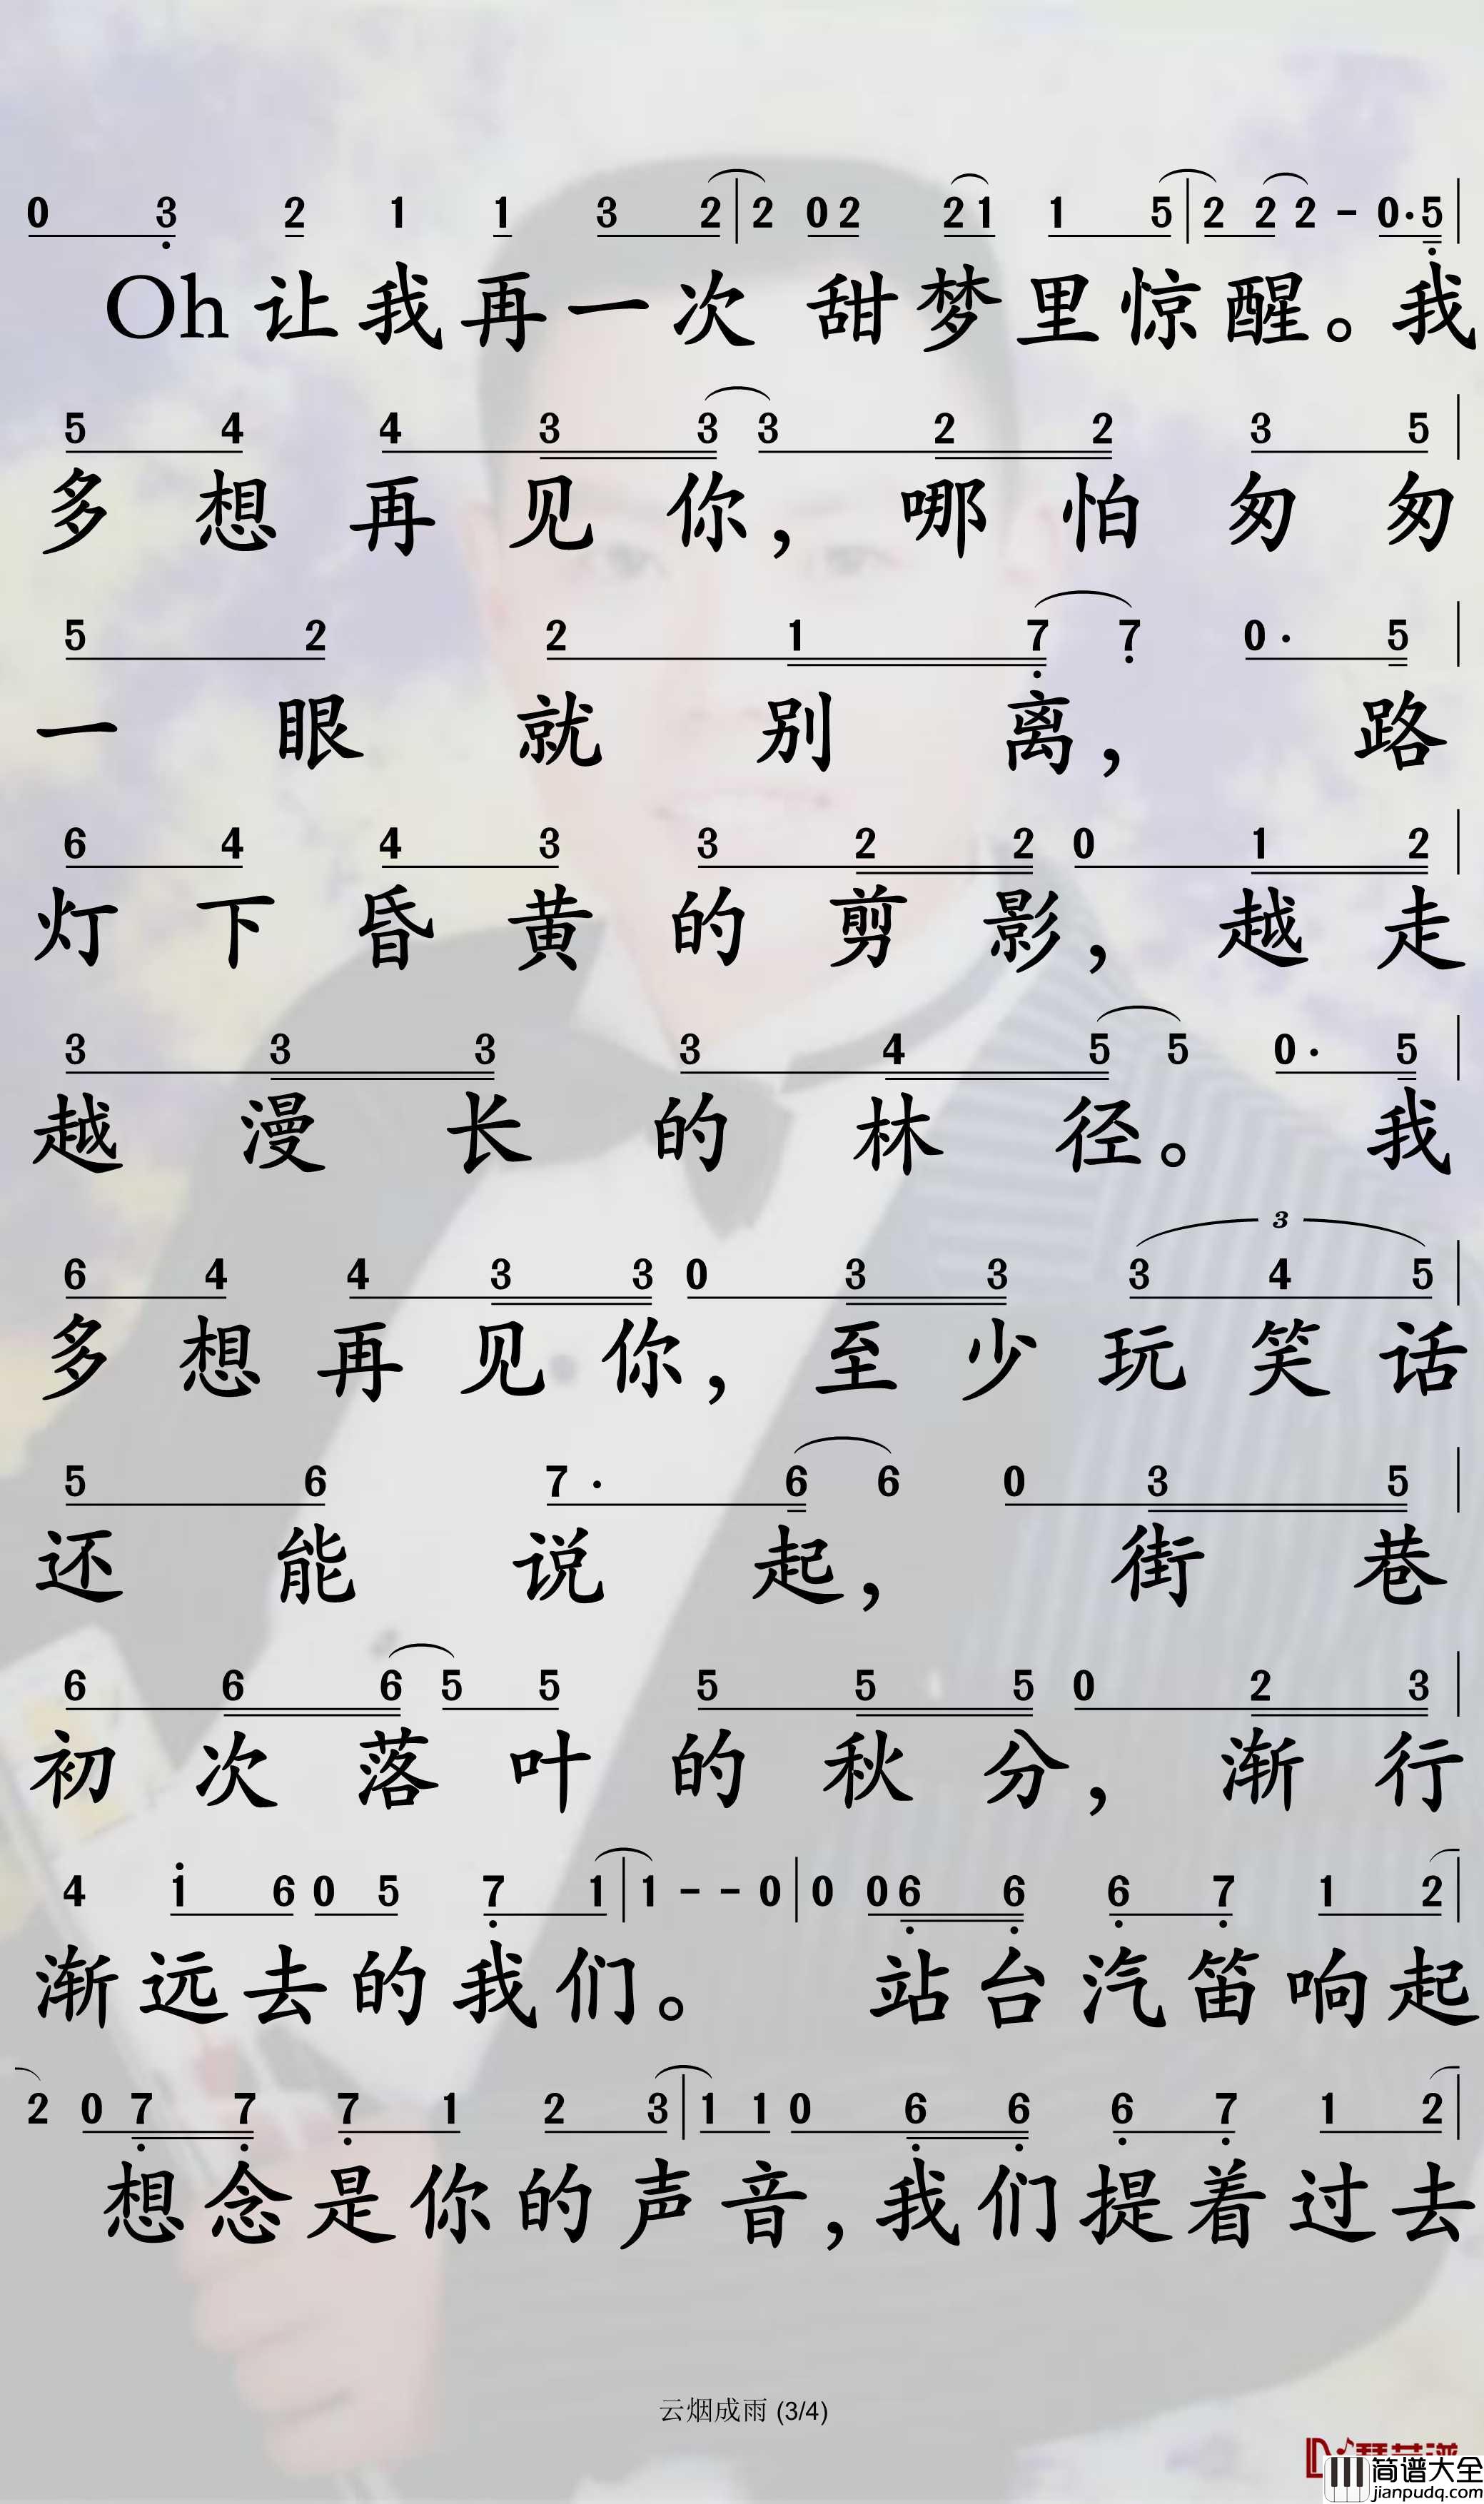 0 3 2 1 1 3 2 | 2 0 2 2 1 1 5 | 2 2 2 - 0· 5 |
Oh 让 我 再 一 次 甜 梦 里 惊 醒。我
5 4 4 3 3 3 2 2 3 5 |
多 想 再 见 你, 哪 怕 匆 匆
5 2 2 1 7 7 0· 5 |
一 眼 就 别 离, 路
6 4 4 3 3 2 2 0 1 2 |
灯 下 昏 黄 的 剪 影, 越 走
3 3 3 3 4 5 5 0· 5 |
越 漫 长 的 林 径。 我
3
6 4 4 3 3 0 3 3 3 4 5 |
多 想 再 见 你, 至 少 玩 笑 话
5 6 7· 6 6 0 3 5 |
还 能 说 起, 街 巷
6 6 6 5 5 5 5 5 0 2 3 |
初 次 落 叶 的 秋 分, 渐 行
4 1 6 0 5 7 1 | 1 - - 0 | 0 0 6 6 6 7 1 2 |
渐 远 去 的 我 们。 站 台 汽 笛 响 起
2 0 7 7 7 1 2 3 | 1 1 0 6 6 6 7 1 2 |
想 念 是 你 的 声 音, 我 们 提 着 过 去
云烟成雨 (3/4)
简谱大全
jianpudq.com